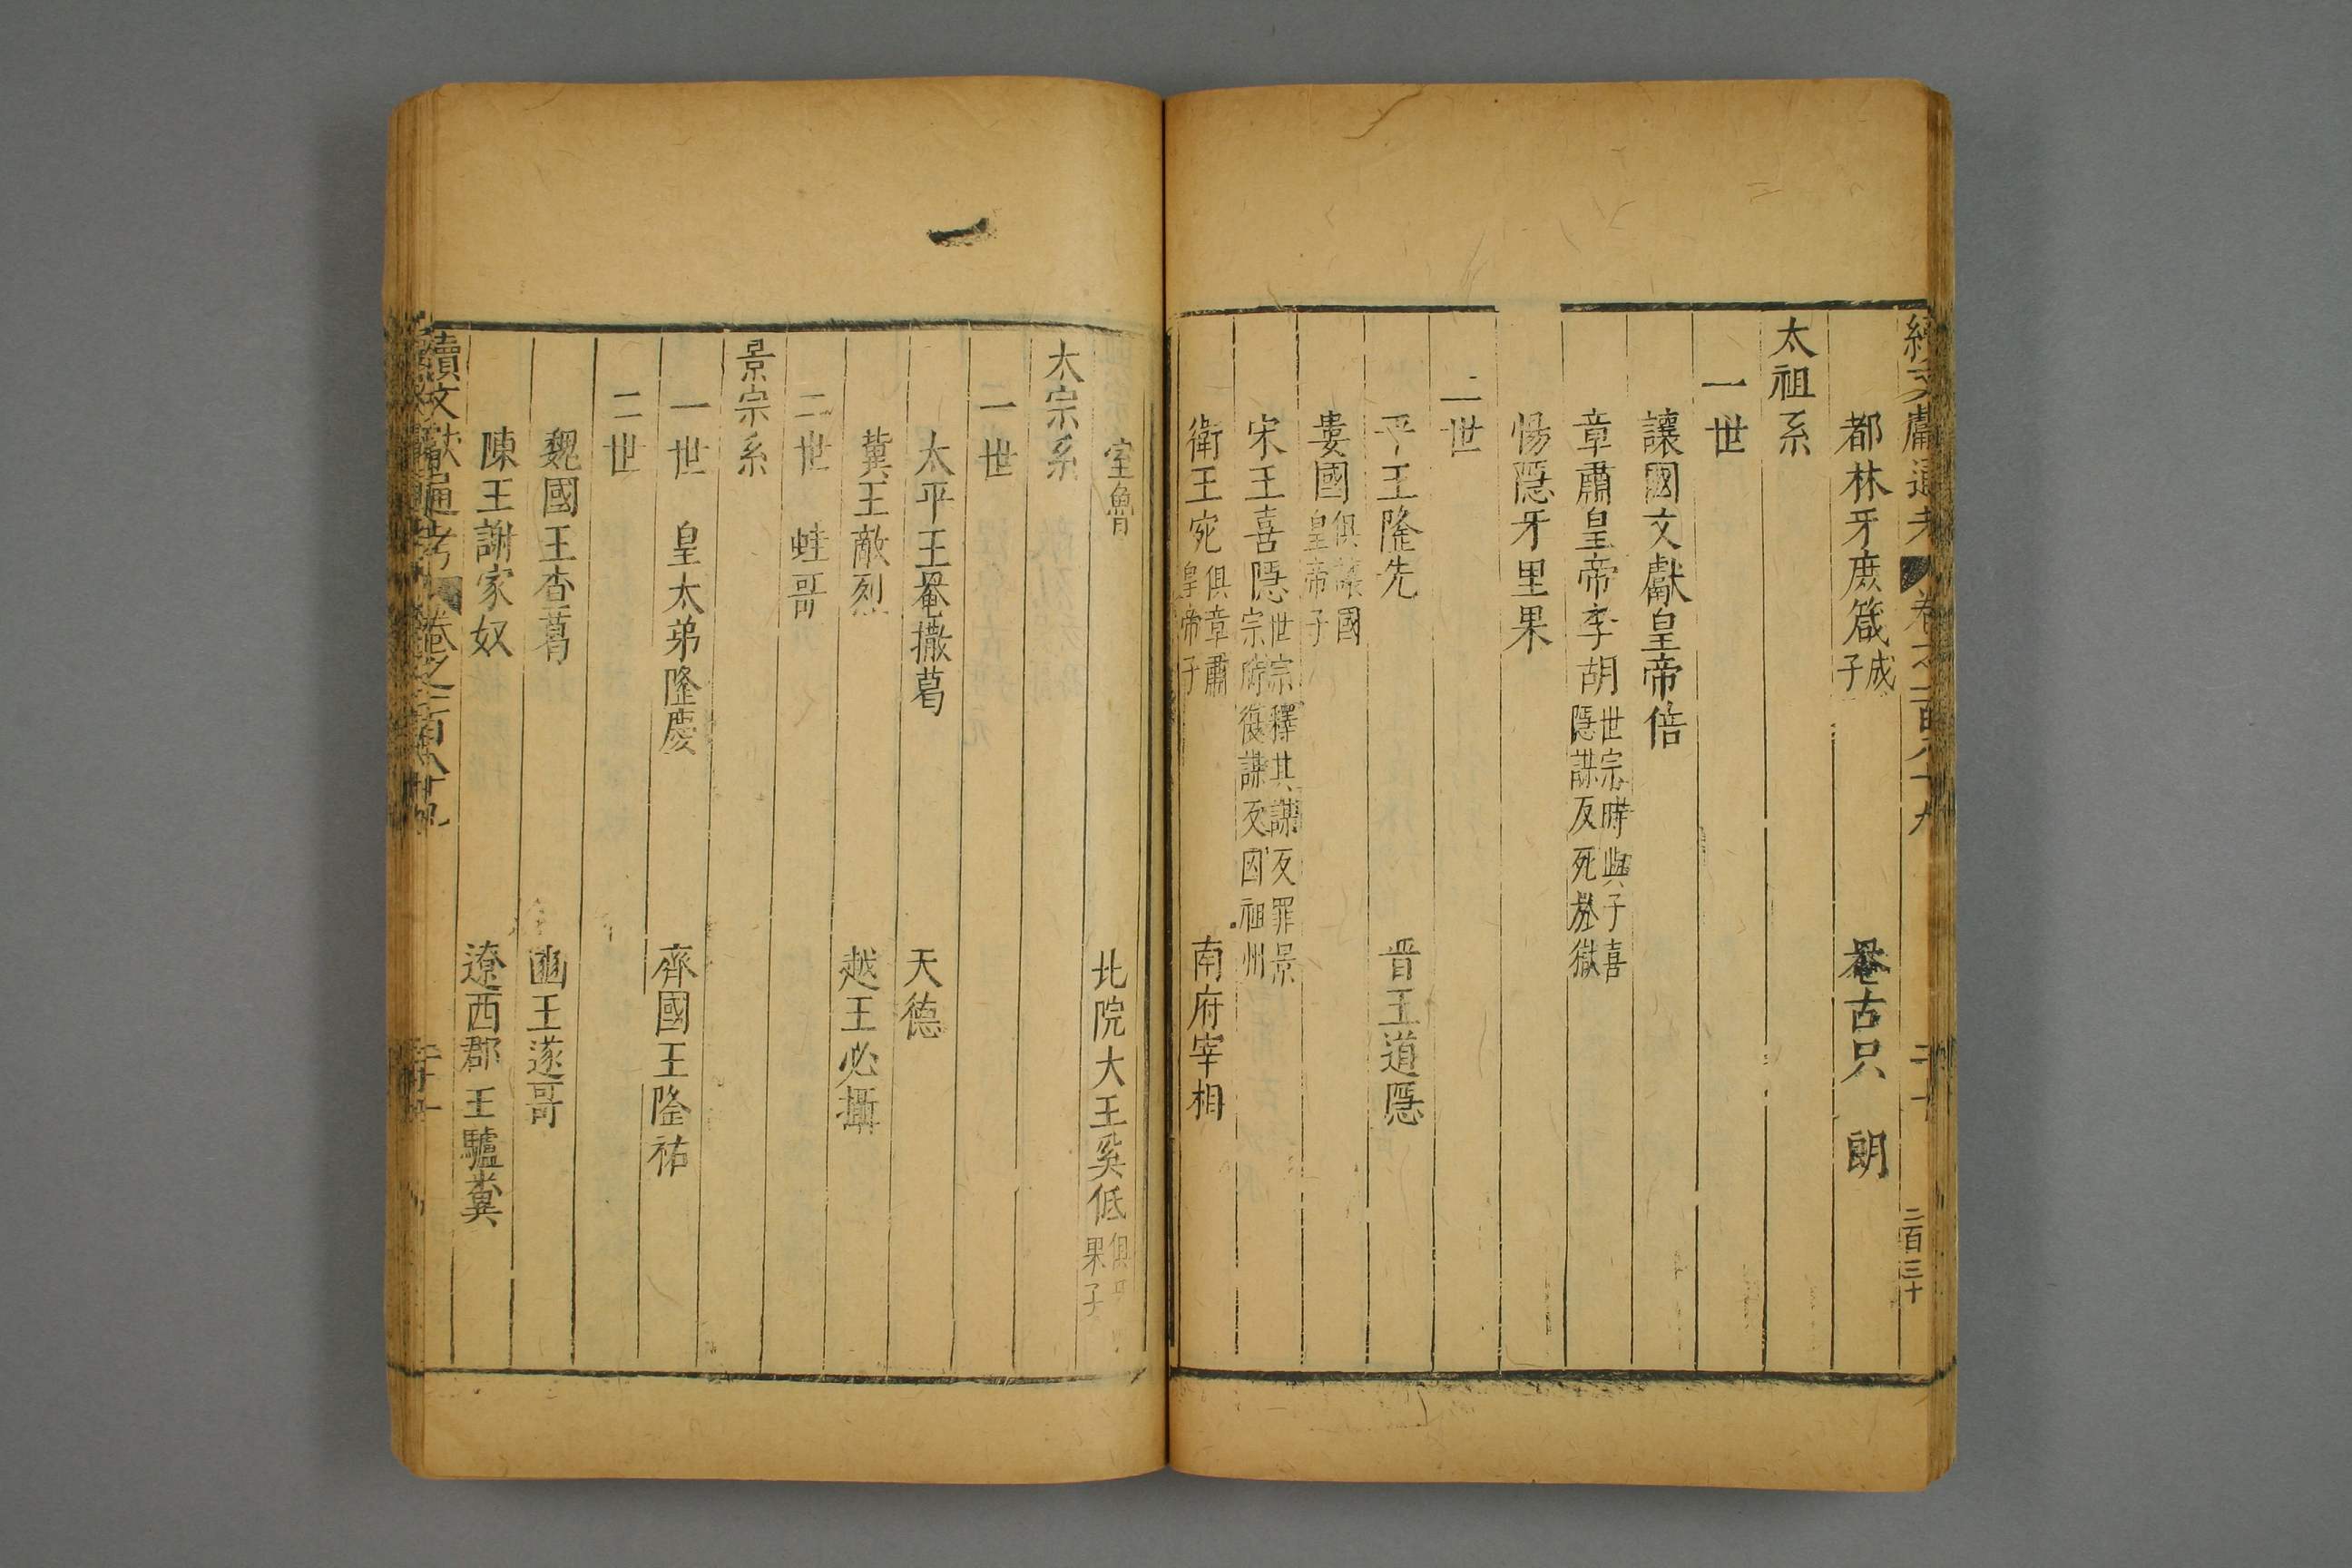 續文獻通考 卷之二百八十九 二十一 二百三十
都林牙庶箴成子 罨古只 朗
太祖系
一世
讓國文獻皇帝倍
章肅皇帝李胡世宗時與子喜隱謀反死於獄
惕隱牙里果
二世
平王隆先 晋王道隱
婁國俱讓國皇帝子
宋王喜隱世宗釋其謀反罪景宗府復謀反囚祖州
衛王宛俱章肅皇帝子 南府宰相
室魯 北院大王奚低俱牙里果子
太宗系
一世
太平王罨撒葛 天德
冀王敵烈 越王必攝
二世 蛙哥
景宗系
一世 皇太弟隆慶 齊國王隆祐
二世
魏國王杏葛 豳王遂哥
陳王謝家奴 遼西郡王驢糞
續文獻通考 卷之二百八十九 二十一